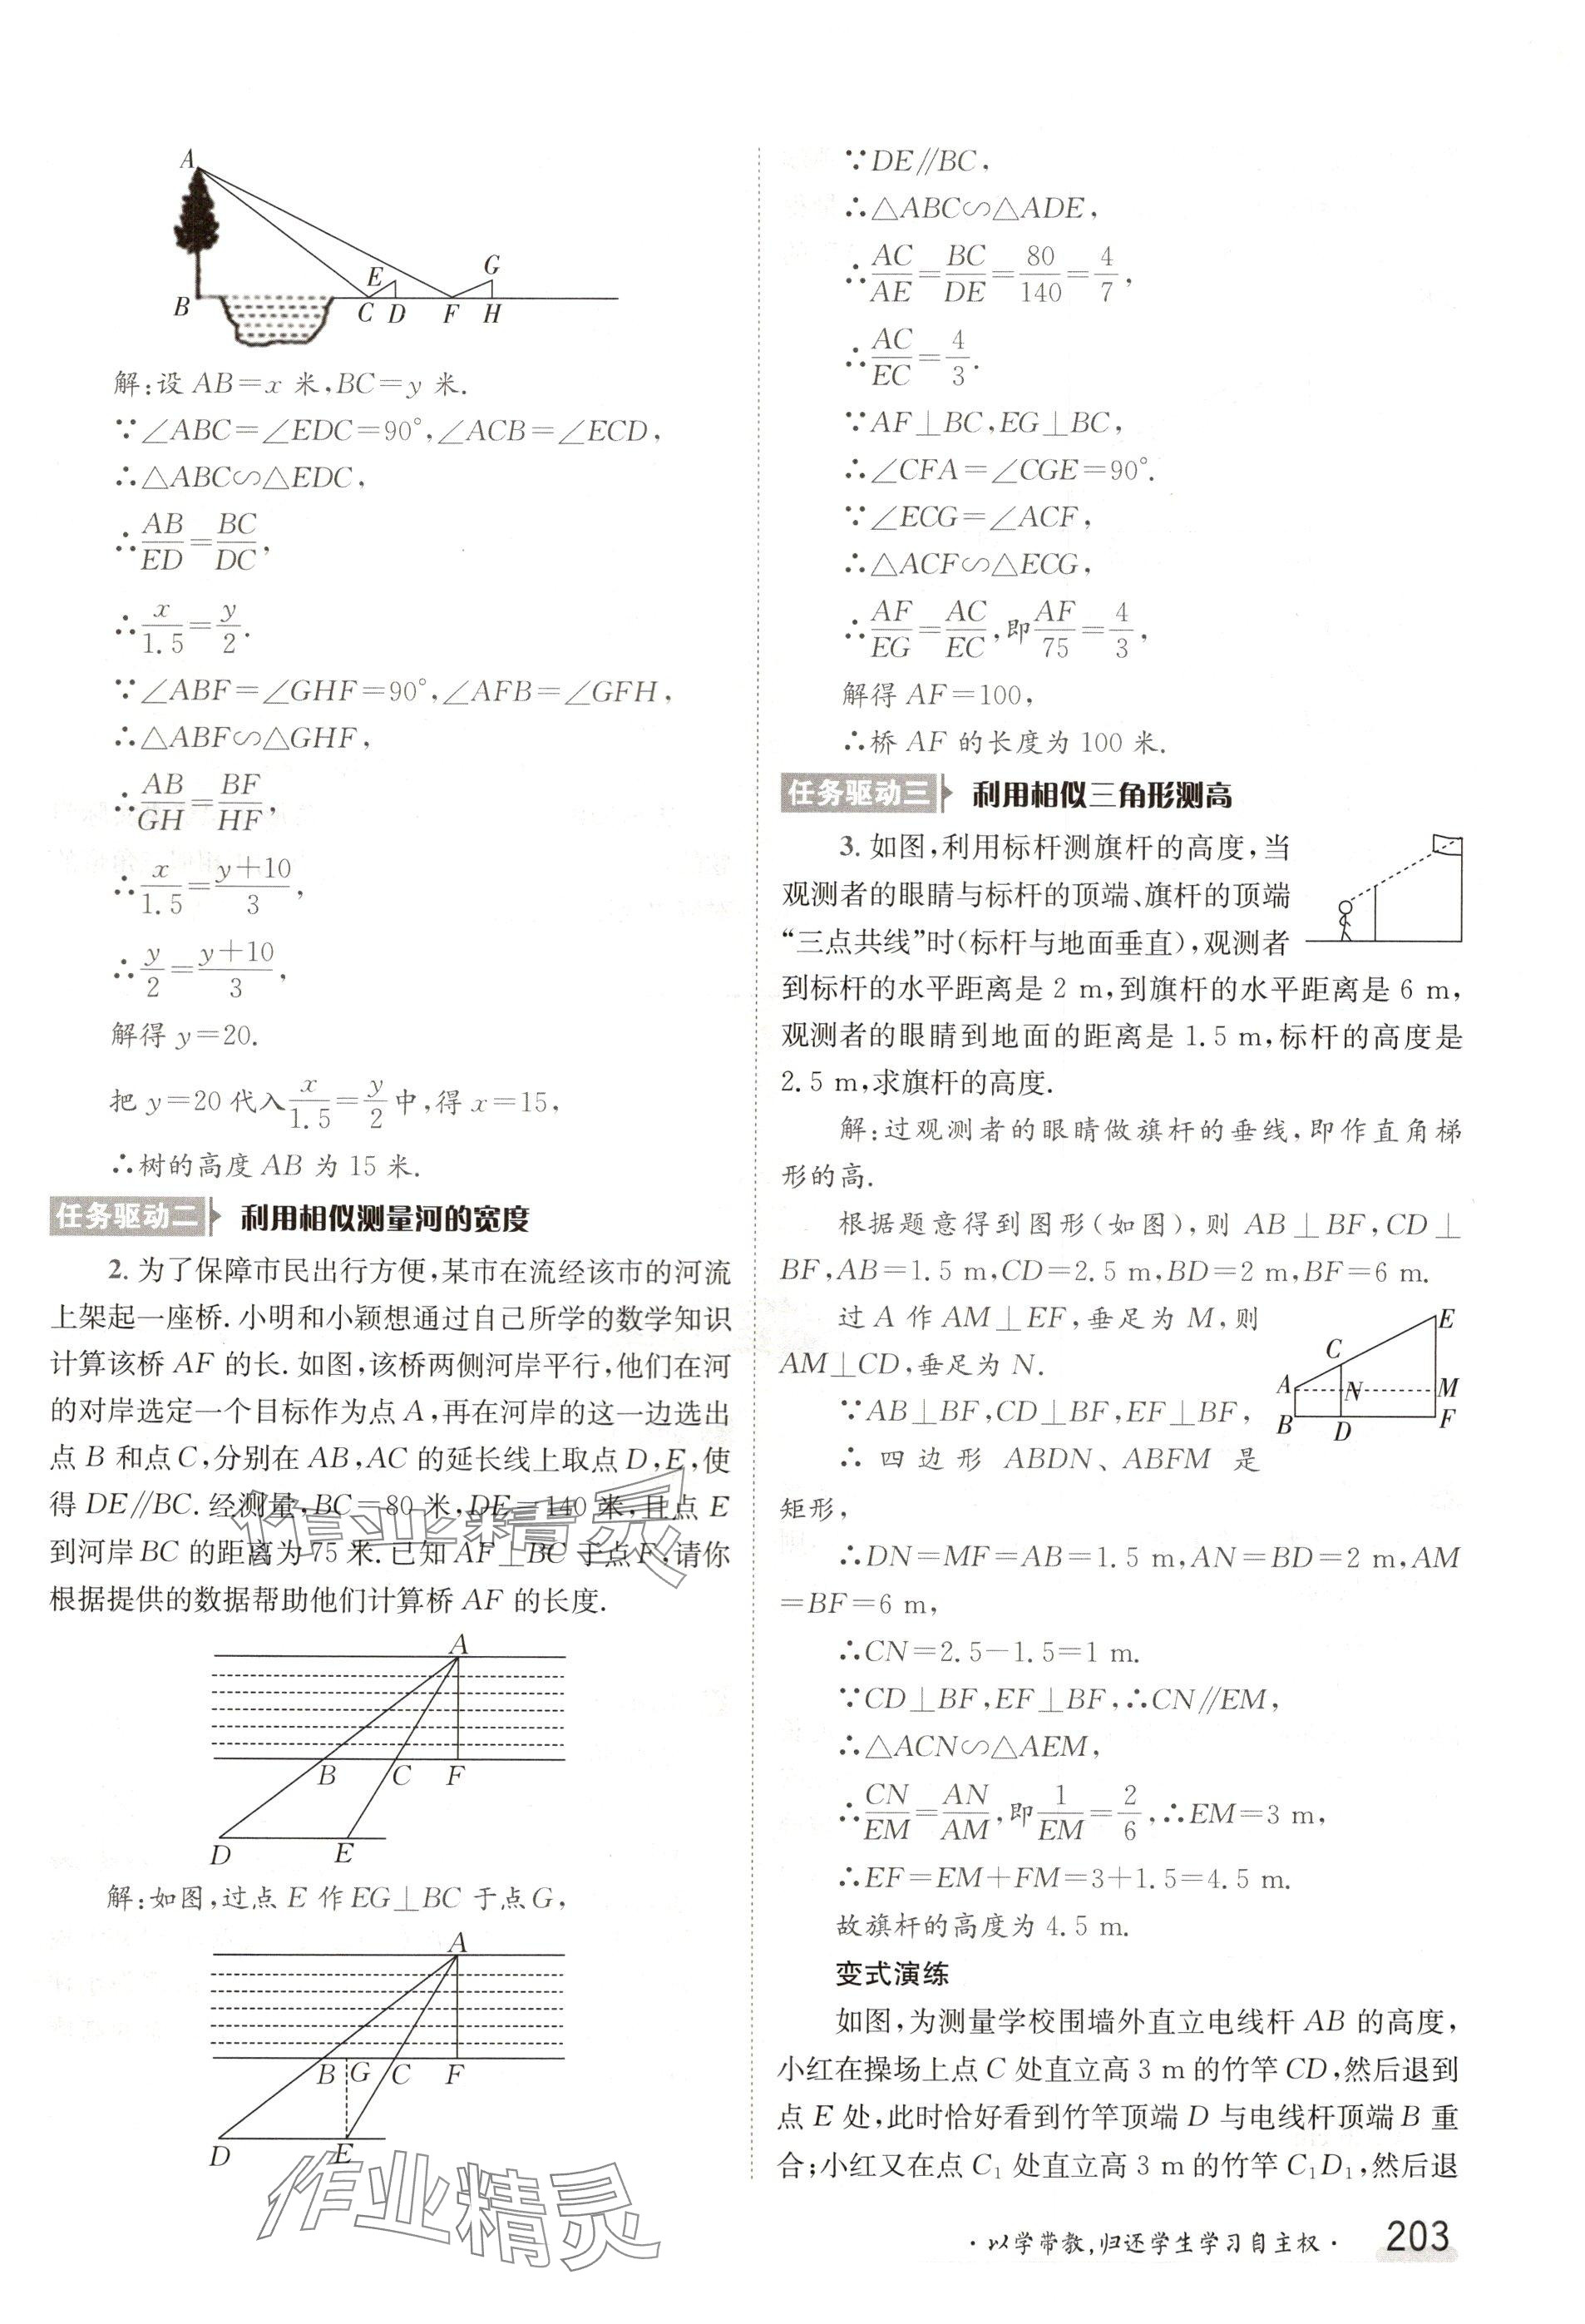 A
E
G
B
C D F H
解:设 AB=x 米,BC=y 米.
∵∠ABC=∠EDC=90°,∠ACB=∠ECD,
∴△ABC∽△EDC,
∴AB/ED=BC/DC,
∴x/1.5=y/2.
∵∠ABF=∠GHF=90°,∠AFB=∠GFH,
∴△ABF∽△GHF,
∴AB/GH=BF/HF,
∴x/1.5=(y+10)/3,
∴y/2=(y+10)/3,
解得 y=20.
把 y=20 代入x/1.5=y/2中,得 x=15,
∴树的高度 AB 为 15 米.
任务驱动二 利用相似测量河的宽度
2. 为了保障市民出行方便,某市在流经该市的河流
上架起一座桥. 小明和小颖想通过自己所学的数学知识
计算该桥 AF 的长. 如图,该桥两侧河岸平行,他们在河
的对岸选定一个目标作为点 A,再在河岸的这一边选出
点 B 和点 C,分别在 AB,AC 的延长线上取点 D,E,使
得 DE∥BC. 经测量,BC=80 米,DE=140 米,且点 E
到河岸 BC 的距离为 75 米. 已知 AF⊥BC 于点 F,请你
根据提供的数据帮助他们计算桥 AF 的长度.
A
B C F
D E
解:如图,过点 E 作 EG⊥BC 于点 G,
A
B G C F
D E
作业精灵
作业精灵
∵DE∥BC,
∴△ABC∽△ADE,
∴AC/AE=BC/DE=80/140=4/7,
∴AC/EC=4/3.
∵AF⊥BC,EG⊥BC,
∴∠CFA=∠CGE=90°.
∵∠ECG=∠ACF,
∴△ACF∽△ECG,
∴AF/EG=AC/EC,即AF/75=4/3,
解得 AF=100,
∴桥 AF 的长度为 100 米.
任务驱动三 利用相似三角形测高
3. 如图,利用标杆测旗杆的高度,当
观测者的眼睛与标杆的顶端、旗杆的顶端
“三点共线”时(标杆与地面垂直),观测者
到标杆的水平距离是 2 m,到旗杆的水平距离是 6 m,
观测者的眼睛到地面的距离是 1.5 m,标杆的高度是
2.5 m,求旗杆的高度.
解:过观测者的眼睛做旗杆的垂线,即作直角梯
形的高.
根据题意得到图形(如图),则 AB⊥BF,CD⊥
BF,AB=1.5 m,CD=2.5 m,BD=2 m,BF=6 m.
过 A 作 AM⊥EF,垂足为 M,则
AM⊥CD,垂足为 N.
∵AB⊥BF,CD⊥BF,EF⊥BF,
∴四边形 ABDN、ABFM 是
矩形,
E
C
A N M
B D F
∴DN=MF=AB=1.5 m,AN=BD=2 m,AM
=BF=6 m,
∴CN=2.5-1.5=1 m.
∵CD⊥BF,EF⊥BF,∴CN∥EM,
∴△ACN∽△AEM,
∴CN/EM=AN/AM,即1/EM=2/6,∴EM=3 m,
∴EF=EM+FM=3+1.5=4.5 m.
故旗杆的高度为 4.5 m.
变式演练
如图,为测量学校围墙外直立电线杆 AB 的高度,
小红在操场上点 C 处直立高 3 m 的竹竿 CD,然后退到
点 E 处,此时恰好看到竹竿顶端 D 与电线杆顶端 B 重
合;小红又在点 C₁ 处直立高 3 m 的竹竿 C₁D₁,然后退
·以学带教,归还学生学习自主权· 203